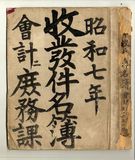 昭和七年
收發件名簿
會計ニ庶務課